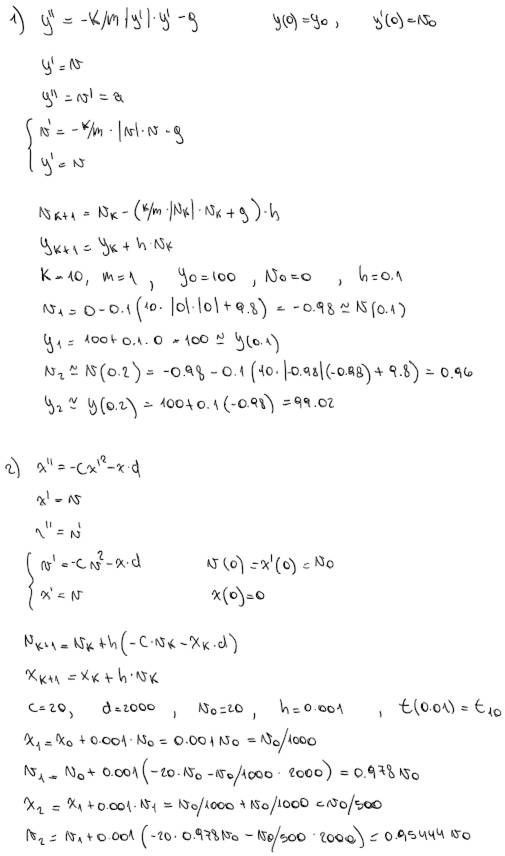 1) y'' = -K/m |y'|·y' - g    y(0)=y0 ,    y'(0)=v0
y' = v
y'' = v' = a
{ v' = -K/m · |v|·v - g
y' = v
vK+1 = vK - (K/m·|vK|·vK + g)·h
yK+1 = yK + h·vK
K=10, m=1 , y0=100 , v0=0 , h=0.1
v1 = 0 - 0.1 (10· |0|·|0| + 9.8) = -0.98 ≃ v(0.1)
y1 = 100 + 0.1·0 = 100 ≃ y(0.1)
v2 ≃ v(0.2) = -0.98 - 0.1 (10·|-0.98|(-0.98) + 9.8) = 0.96
y2 ≃ y(0.2) = 100 + 0.1(-0.98) = 99.02
2) x'' = -cx'² - x·d
x' = v
x'' = v'
{ v' = -c v² - x·d    v(0) = x'(0) = v0
x' = v    x(0)=0
vK+1 = vK + h(-c·vK - xK·d)
xK+1 = xK + h·vK
c=20, d=2000 , v0=20 , h=0.001 , t(0.01) = t10
x1 = x0 + 0.001·v0 = 0.001v0 = v0/1000
v1 = v0 + 0.001 (-20·v0 - v0/1000 · 2000) = 0.978 v0
x2 = x1 + 0.001·v1 = v0/1000 + v0/1000 = v0/500
v2 = v1 + 0.001 (-20· 0.978v0 - v0/500 · 2000) = 0.95444 v0